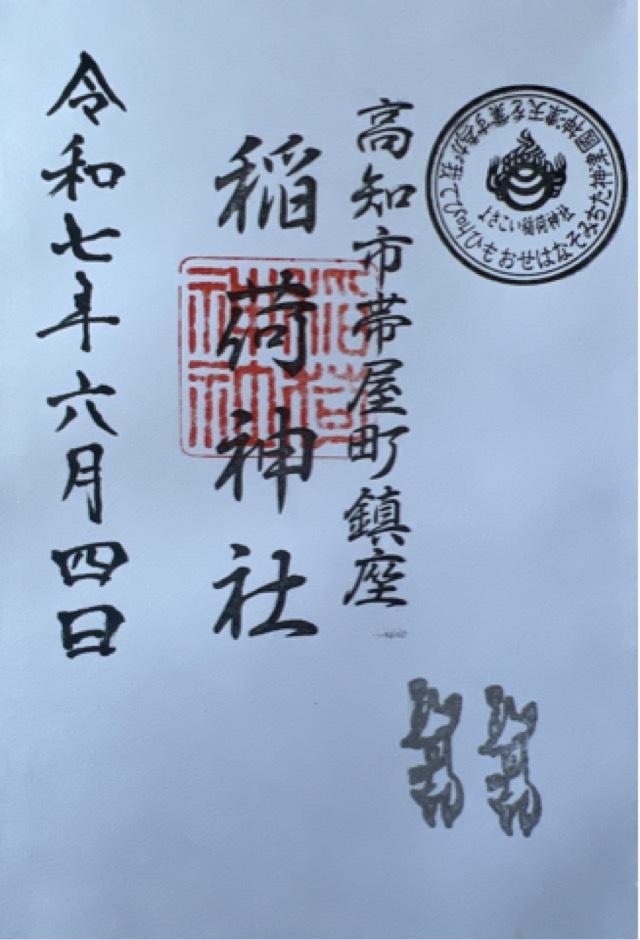 高知市帯屋町鎮座
稲荷神社
令和七年六月四日
よさこい稲荷神社
稲荷神社